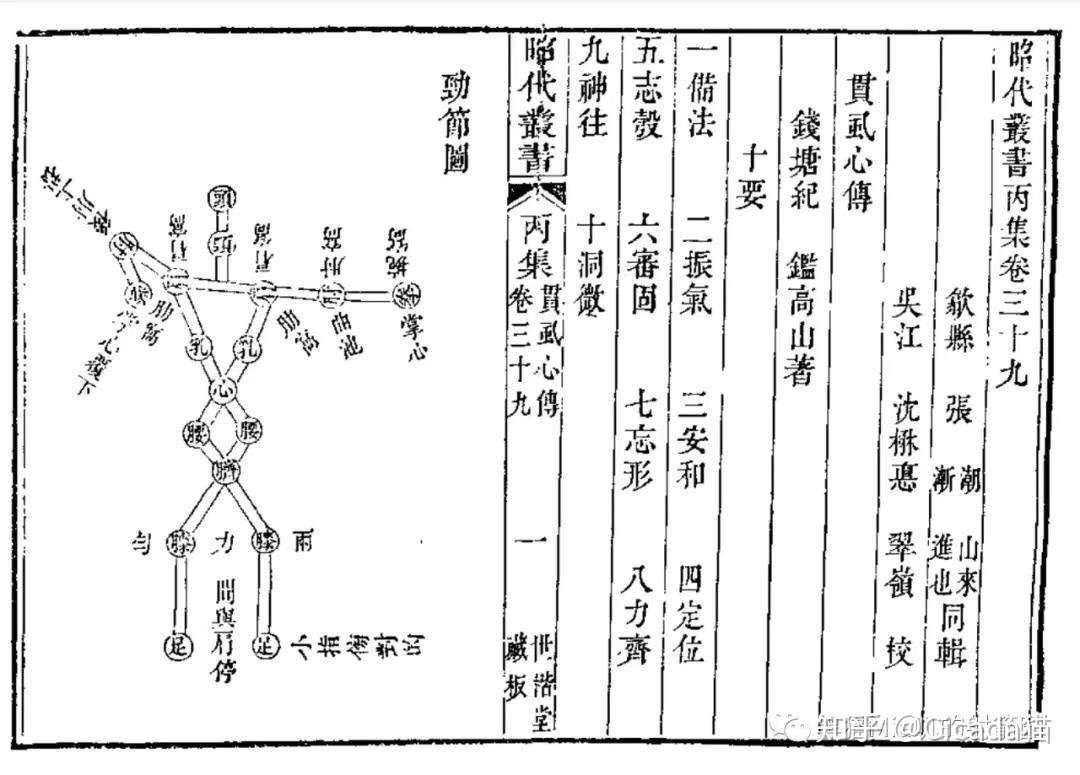 昭代叢書丙集卷三十九
歙縣 張 潮 山來 漸 進也 同輯
吳江 沈楙悳 翠嶺 校
貫虱心傳
錢塘紀 鑑高山著
十要
一備法 二振氣 三安和 四定位
五志彀 六審固 七忘形 八力齊
九神往 十洞微
昭代叢書 丙集 貫虱心傳 卷三十九 一 世楷堂 藏板
勁節圖
頭
肩窩
肩窩
肘窩
肘
拳
掌心
曲池
肋窩
肋窩
乳
乳
心
腰
腰
臍
膝
力
膝
足
足
間與肩停
小指衝對的
知乎 @Cicada猫